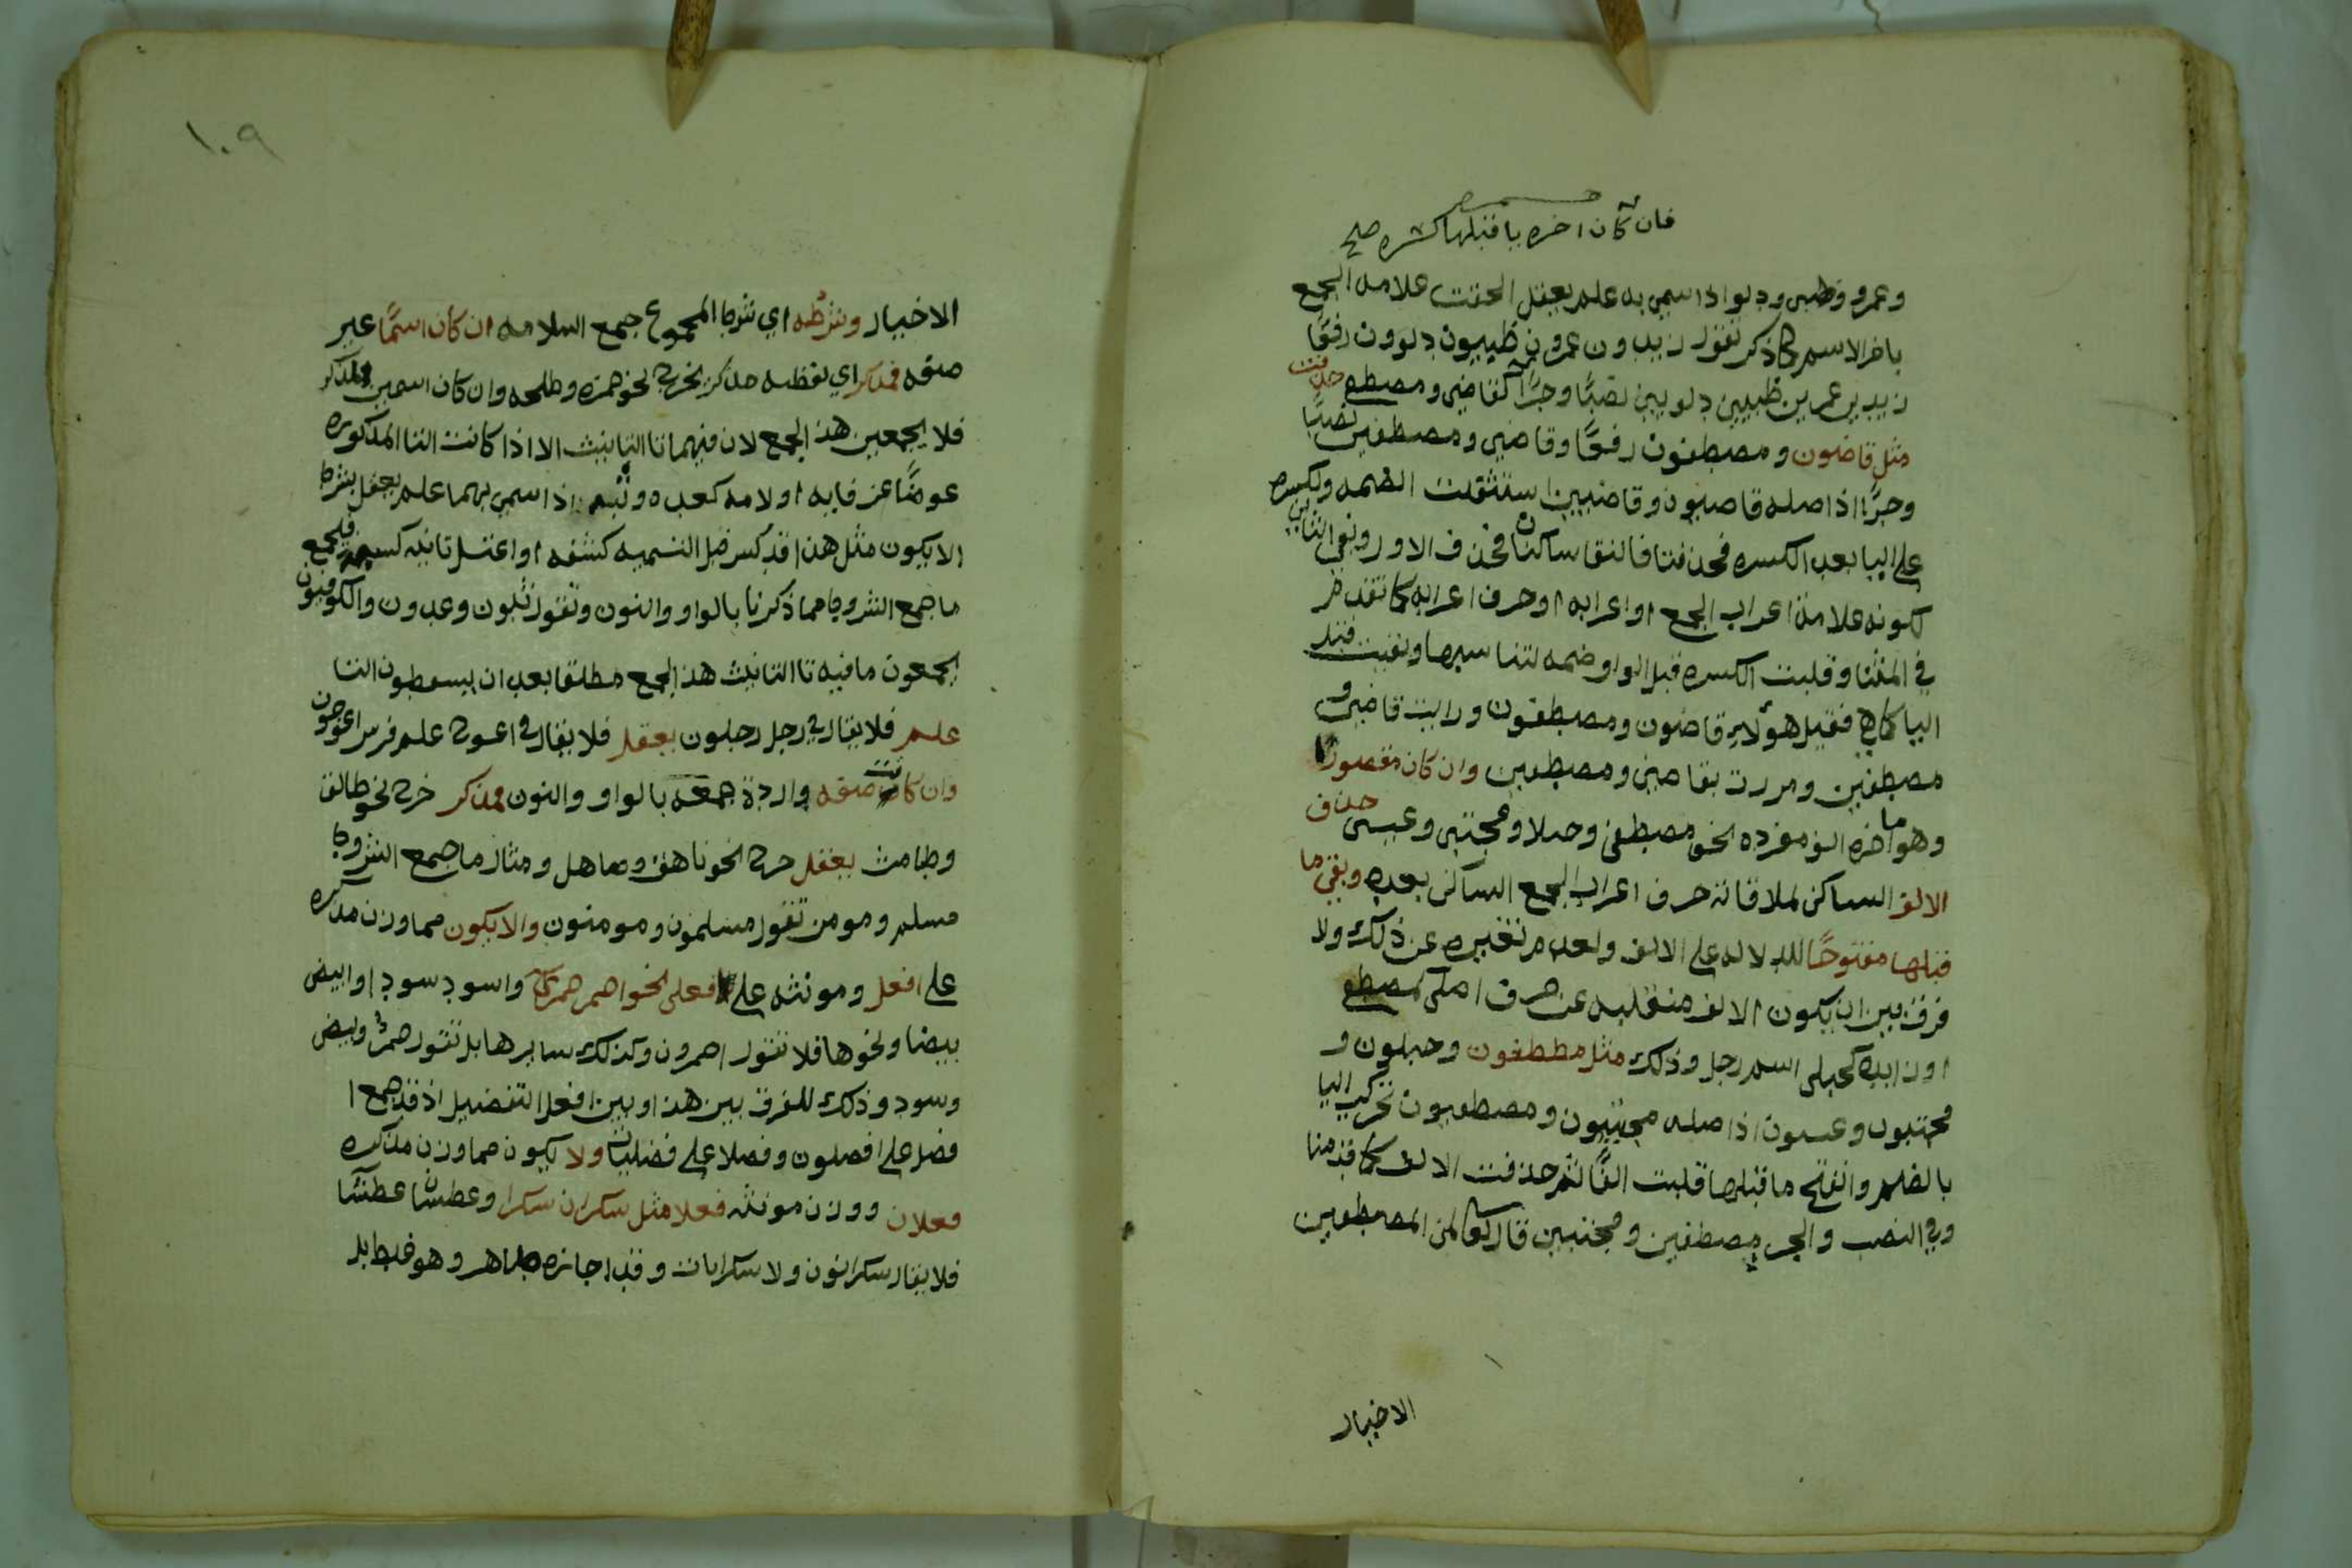 فان كان اخره يا قبلها كسره صح
وعمرو وظبى ودلو اذا سمى به علم يعقل الحقت علامه الجمع
باخر الاسم كما ذكر تقول زيدون عمرون ظبيون دلوون رفعًا
زيدين عمرين ظبيين دلوين نصبًا وجرًا كقاضى ومصطفى حذفت
مثل قاضون ومصطفون رفعًا وقاضين ومصطفين نصبًا
وجرًا اذ اصله قاضيون وقاضيين استثقلت الضمه والكسره
على اليا بعد الكسره فحذفتا فالتقا ساكنان فحذف الاول وبقى الثانى
لكونه علامة اعراب الجمع او اعرابه او حرف اعرابه كما تقدم
في المثنا وقلبت الكسره قبل الواو ضمه لتناسبها وبقيت قبل
اليا كما هي فقيل هؤلاء قاضون ومصطفون ورايت قاضين و
مصطفين ومررت بقاضين ومصطفين وان كان مقصورًا
وهو ما اخره الف مفرده نحو مصطفى وحبلا ومجتبى وعيسى حذف
الالف الساكن لملاقاته حرف اعراب الجمع الساكن بعده وبقى ما
قبلها مفتوحًا للدلاله على الالف ولعدم تغيره عن ذلك ولا
فرق بين ان يكون الالف منقلبه عن حرف اصلى كمصطفى
او زايده كحبلى اسم رجل وذلك مثل مصطفون وحبلون و
مجتبون وعيسون اذ اصله مجتبيون ومصطفيون تحركت اليا
بالضم وانفتح ما قبلها قلبت الفًا ثم حذفت الالف كما قدمنا
وفي النصب والجر مصطفين ومجتبين قال تعالى لمن المصطفين
الاخيار
١٠٩
الاخيار وشرطه اي شرط المجموع جمع السلامه ان كان اسمًا غير
صفه فمذكر اي لفظه مذكر يخرج نحو حمزه وطلحه وان كان اسمين لمذكر
فلا يجمعين هذا الجمع لان فيهما تا التانيث الا اذا كانت التا المذكوره
عوضًا عن فايه او لامه كعده وثبه اذا سمى بهما علم يعقل بشرط
الا يكون مثل هذا قد كسر قبل التسميه كشفه او اعتل ثانيه فيجمع
ما جمع الشروط مما ذكرنا بالواو والنون وتقول ثبون وعدون والكوفيون
يجمعون ما فيه تا التانيث هذا الجمع مطلقا بعد ان يسقطون التا
علم فلا يقال في رجل رجلون يعقل فلا يقال في اعوج علم فرس اعوجون
وان كانت صفه واردة جمعه بالواو والنون فمذكر خرج نحو طالق
وطامث يعقل خرج نحو ناهق وصاهل ومثال ما جمع الشروط
مسلم ومومن تقول مسلمون ومومنون والا يكون مما وزن مذكره
على افعل ومونثه على فعلى نحو احمر حمرا واسود سودا وابيض
بيضا ونحوها فلا تقول احمرون وكذلك سايرها بل تقول حمر وبيض
وسود وذلك للفرق بين هذا وبين افعل التفضيل اذ قد جمع ا
فضل على افضلون وفضلا على فضليات ولا يكون مما وزن مذكره
فعلان ووزن مونثه فعلا مثل سكران سكرا وعطشان عطشا
فلا يقال سكرانون ولا سكرايات وقد اجازه طاهر وهو